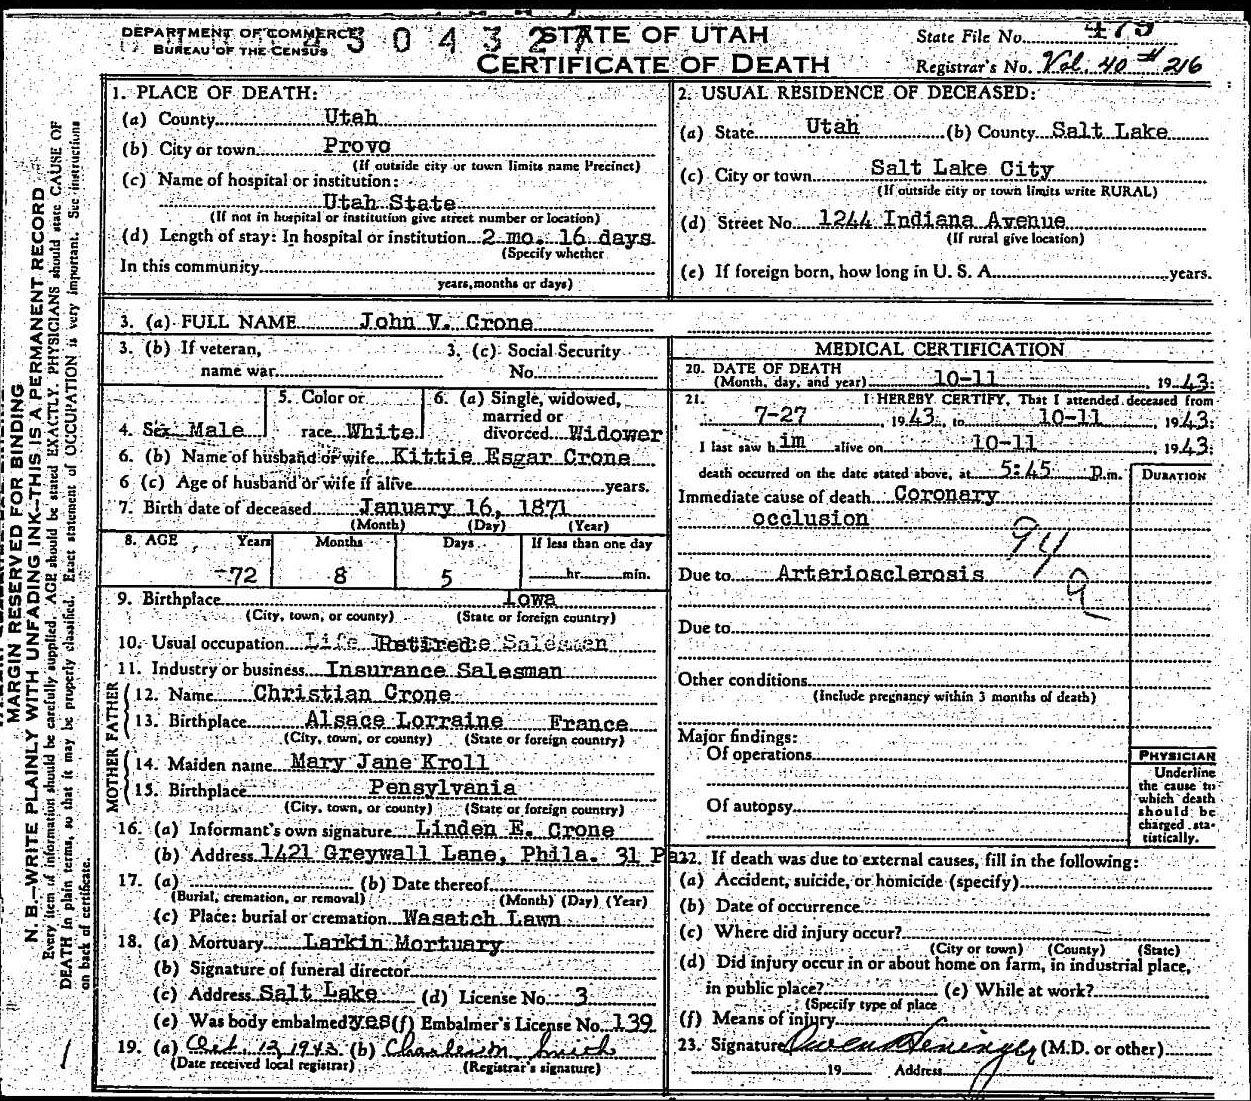 DEPARTMENT OF COMMERCE
BUREAU OF THE CENSUS
4 3 0 4 3 2 7
STATE OF UTAH
CERTIFICATE OF DEATH
State File No. 475
Registrar's No. Vol. 40 # 216
MARGIN RESERVED FOR BINDING
N. B.—WRITE PLAINLY WITH UNFADING INK—THIS IS A PERMANENT RECORD
Every item of information should be carefully supplied. AGE should be stated EXACTLY. PHYSICIANS should state CAUSE OF
DEATH in plain terms, so that it may be properly classified. Exact statement of OCCUPATION is very important. See instructions
on back of certificate.
1. PLACE OF DEATH:
(a) County Utah
(b) City or town Provo
(If outside city or town limits name Precinct)
(c) Name of hospital or institution:
Utah State
(If not in hospital or institution give street number or location)
(d) Length of stay: In hospital or institution 2 mo. 16 days
(Specify whether
In this community
years, months or days)
2. USUAL RESIDENCE OF DECEASED:
(a) State Utah (b) County Salt Lake
(c) City or town Salt Lake City
(If outside city or town limits write RURAL)
(d) Street No. 1244 Indiana Avenue
(If rural give location)
(e) If foreign born, how long in U. S. A. years.
3. (a) FULL NAME John V. Crone
3. (b) If veteran,
name war
3. (c) Social Security
No.
4. Sex Male
5. Color or
race White
6. (a) Single, widowed,
married or
divorced Widower
6. (b) Name of husband or wife Kittie Esgar Crone
6 (c) Age of husband or wife if alive years.
7. Birth date of deceased January 16, 1871
(Month) (Day) (Year)
8. AGE Years Months Days If less than one day
72 8 5 hr. min.
9. Birthplace Iowa
(City, town, or county) (State or foreign country)
10. Usual occupation Retired
11. Industry or business Insurance Salesman
FATHER
12. Name Christian Crone
13. Birthplace Alsace Lorraine France
(City, town, or county) (State or foreign country)
MOTHER
14. Maiden name Mary Jane Kroll
15. Birthplace Pensylvania
(City, town, or county) (State or foreign country)
16. (a) Informant's own signature Linden E. Crone
(b) Address 1421 Greywall Lane, Phila. 31 Pa.
17. (a) (b) Date thereof
(Burial, cremation, or removal) (Month) (Day) (Year)
(c) Place: burial or cremation Wasatch Lawn
18. (a) Mortuary Larkin Mortuary
(b) Signature of funeral director
(c) Address Salt Lake (d) License No. 3
(e) Was body embalmed? yes (f) Embalmer's License No. 139
19. (a) Oct. 12, 1943 (b) Charles M. Smith
(Date received local registrar) (Registrar's signature)
MEDICAL CERTIFICATION
20. DATE OF DEATH
(Month, day, and year) 10-11, 1943.
21. I HEREBY CERTIFY, That I attended deceased from
7-27, 1943, to 10-11, 1943.
I last saw him alive on 10-11 1943.
death occurred on the date stated above, at 5:45 p.m.
DURATION
Immediate cause of death Coronary
occlusion
94
a
Due to Arteriosclerosis
Due to
Other conditions
(Include pregnancy within 3 months of death)
Major findings:
Of operations
Of autopsy
PHYSICIAN
Underline
the cause to
which death
should be
charged sta-
tistically.
22. If death was due to external causes, fill in the following:
(a) Accident, suicide, or homicide (specify)
(b) Date of occurrence
(c) Where did injury occur?
(City or town) (County) (State)
(d) Did injury occur in or about home on farm, in industrial place,
in public place? (e) While at work?
(Specify type of place
(f) Means of injury
23. Signature Owen Heninger (M.D. or other)
19 Address